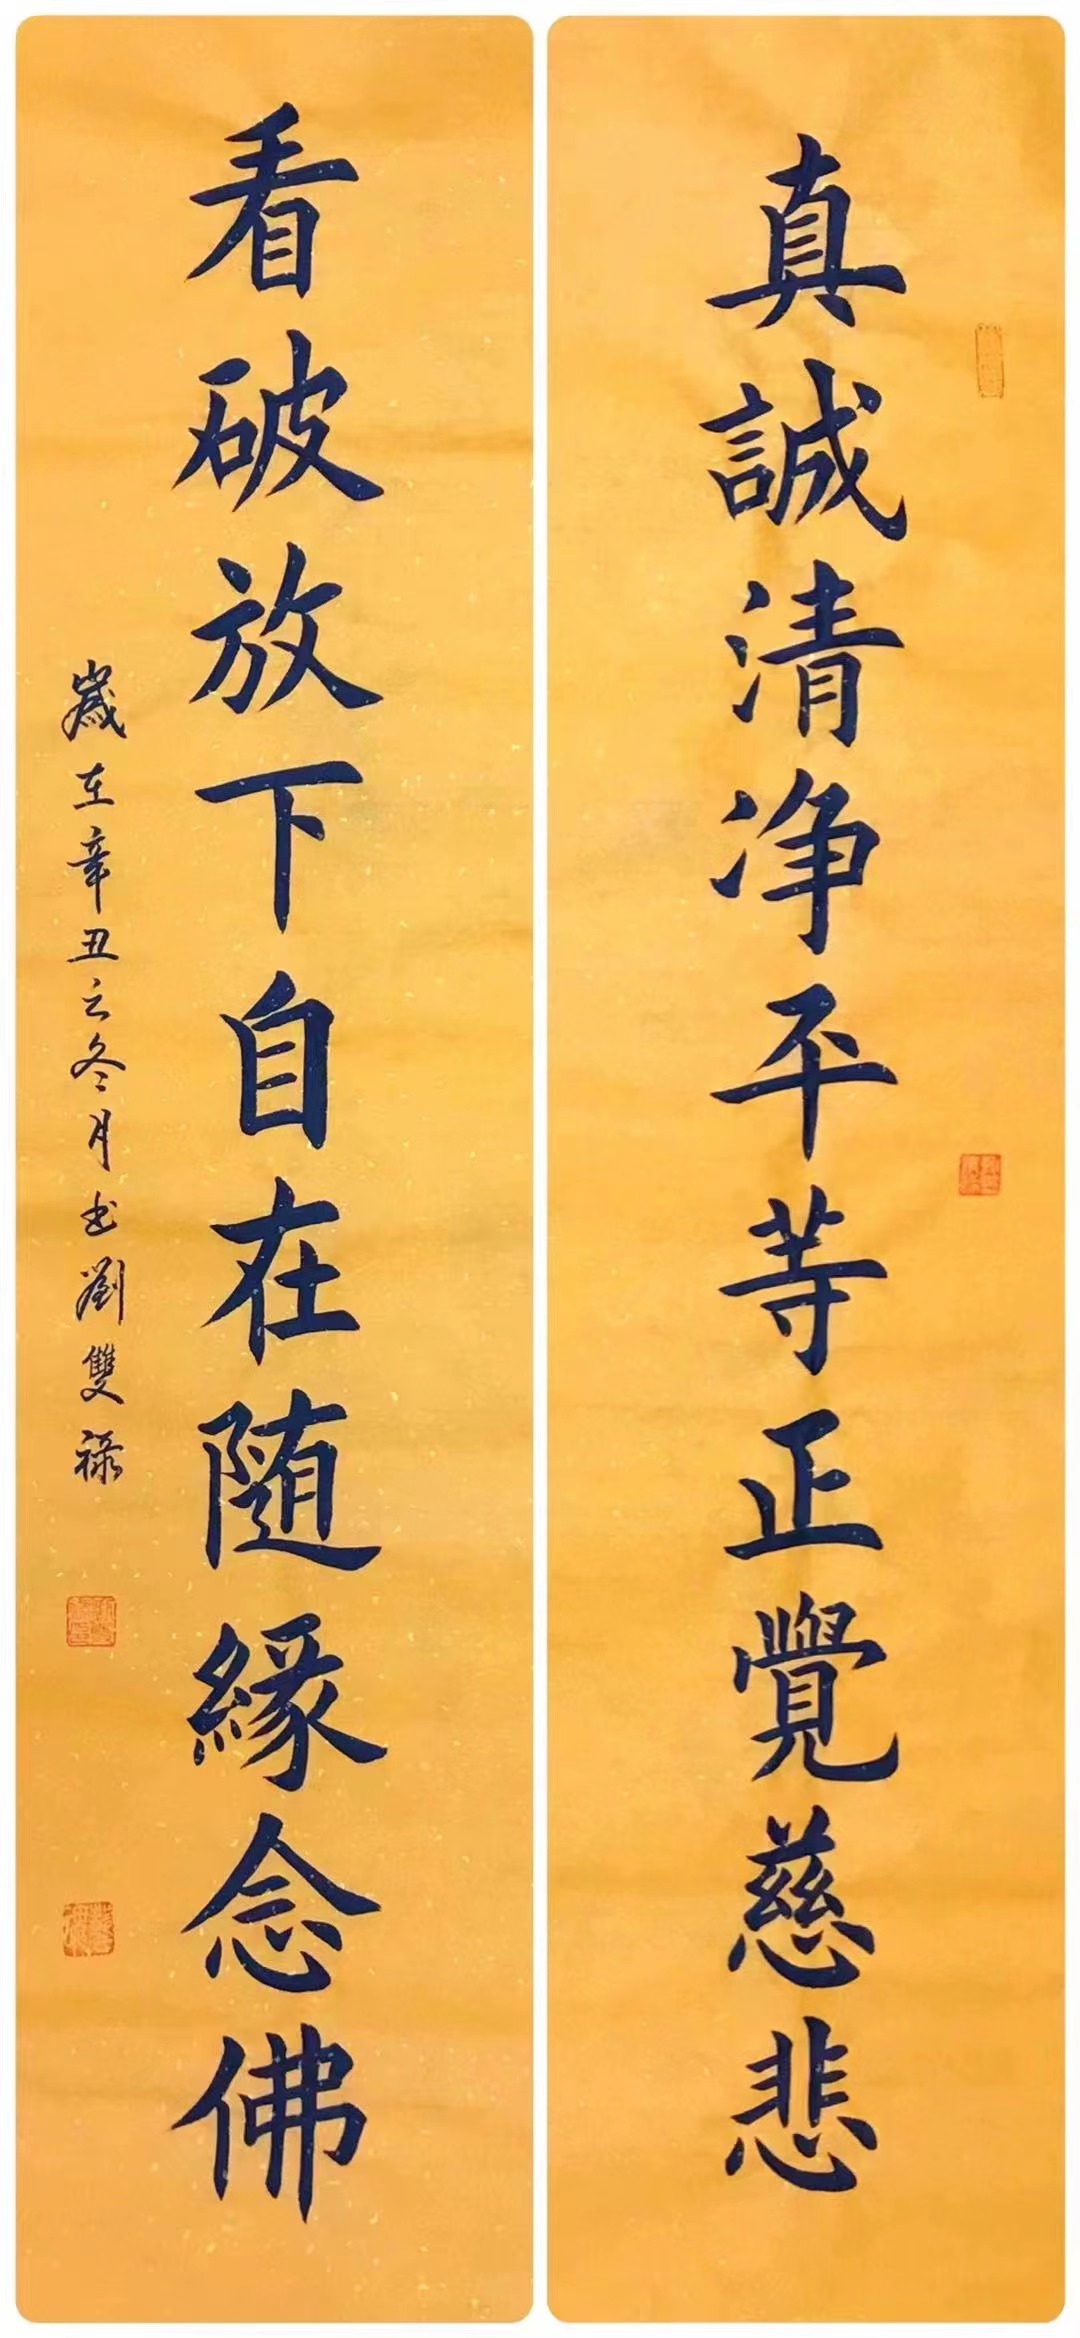 真誠清净平等正覺慈悲
看破放下自在随緣念佛
歲在辛丑之冬月书劉雙祿